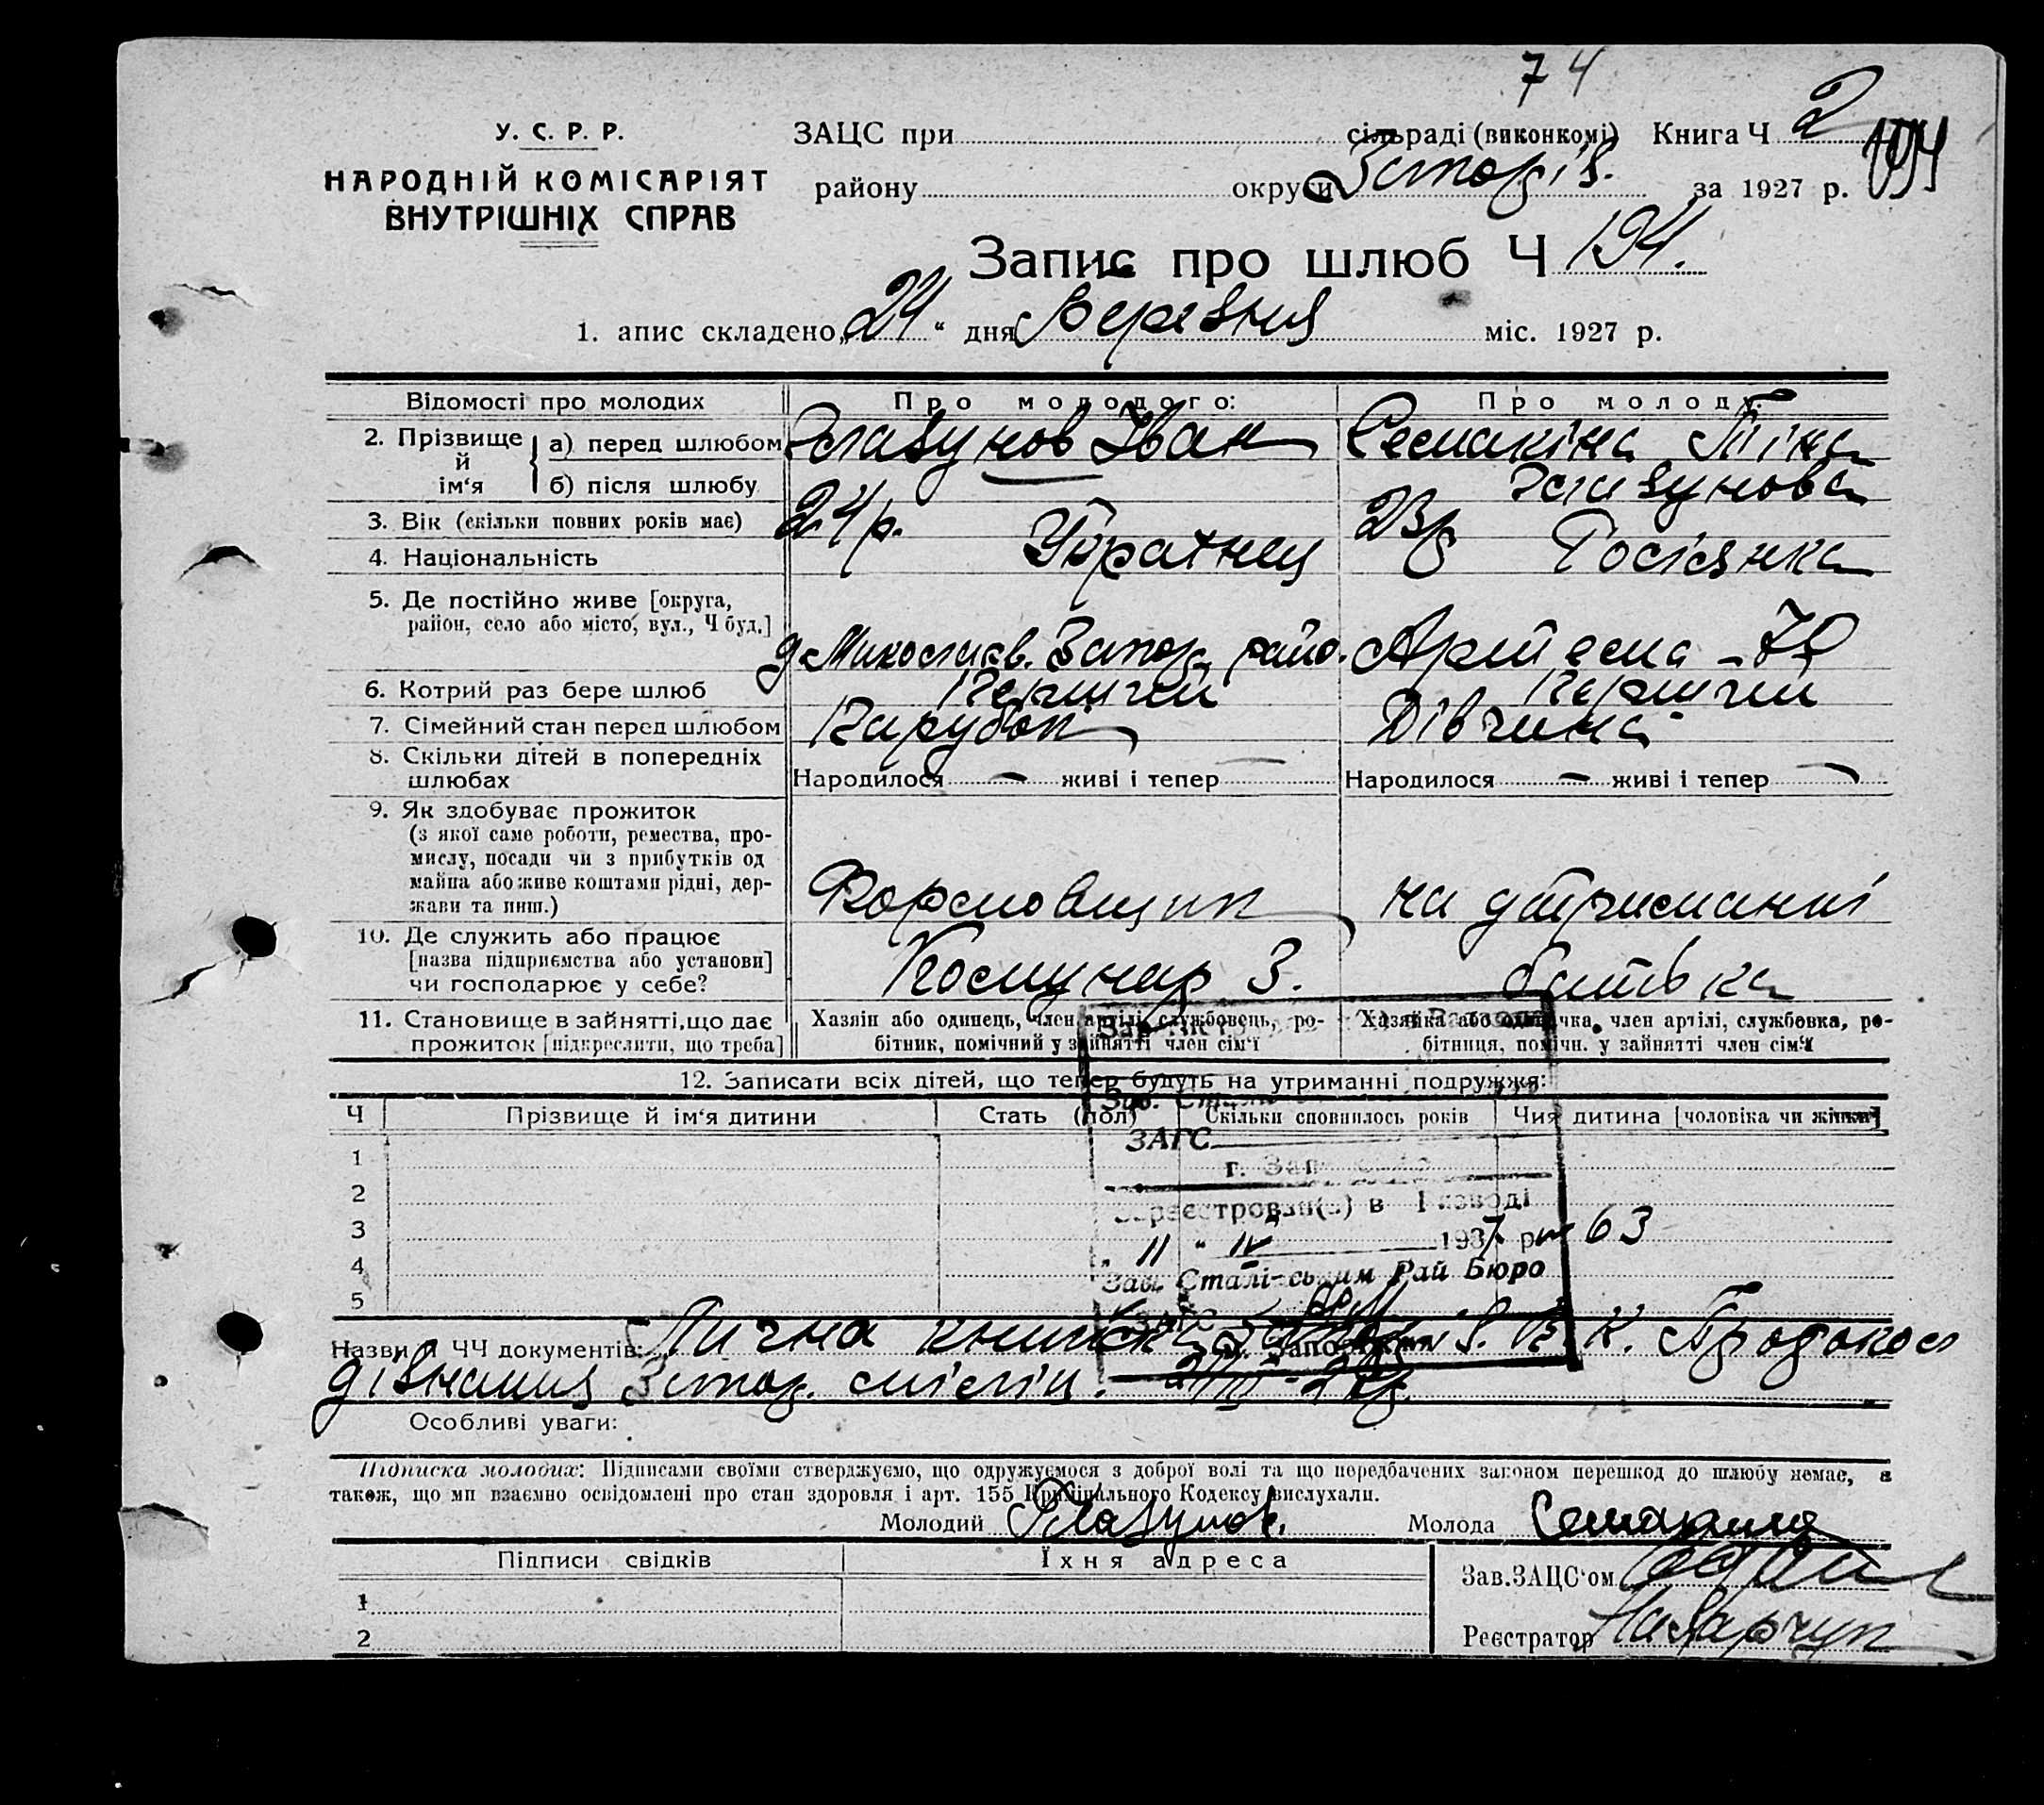 74
У. С. Р. Р.
НАРОДНІЙ КОМІСАРІЯТ
ВНУТРІШНІХ СПРАВ
ЗАЦС при сільраді (виконкомі) Книга Ч 2
194
району округи Запоріз. за 1927 р.
Запис про шлюб Ч 194.
1. апис складено „24“ дня Вересня міс. 1927 р.
Відомості про молодих Про молодого: Про молоду:
2. Прізвище й ім‘я
а) перед шлюбом Глазунов Іван Семакіна Тіна
б) після шлюбу Глазунова
3. Вік (скільки повних років має) 24 р. 23 р
4. Національність Українец Росіянка
5. Де постійно живе [округа,
район, село або місто, вул., Ч буд.] Запор. райо. Артема - 70
6. Котрий раз бере шлюб Перший Перший
7. Сімейний стан перед шлюбом Парубок Дівчина
8. Скільки дітей в попередніх
шлюбах Народилося — живі і тепер — Народилося — живі і тепер —
9. Як здобуває прожиток
(з якої саме роботи, ремества, про-
мислу, посади чи з прибутків од
майна або живе коштами рідні, дер-
жави та инш.) Формовщик на утриманні
10. Де служить або працює
[назва підприємства або установи]
чи господарює у себе? Комунар З. батька
11. Становище в зайнятті, що дає
прожиток [підкреслити, що треба]
Хазяїн або одинець, член артілі, службовець, ро-
бітник, помічний у зайнятті член сім‘ї
Хазяйка або одиначка, член артілі, службовка, ро-
бітниця, помічн. у зайнятті член сім‘ї
12. Записати всіх дітей, що тепер будуть на утриманні подружжя:
Ч Прізвище й ім‘я дитини Стать (пол) Скільки сповнилось років Чия дитина [чоловіка чи жінки]
1
2
3
4
5
ЗАГС
г. Зап
Зареєстрован(а) в Розводі
„ 11 “ IV 1937 р № 63
Зав. Сталінським Рай Бюро
ЗАГС
м. Запоріжжя
Назви й ЧЧ документів: Лична книжка В. К. Протокол
дізнання Запор. міліц.
Особливі уваги:
Підписка молодих: Підписами своїми стверджуємо, що одружуємося з доброї волі та що передбачених законом перешкод до шлюбу немає, а
також, що ми взаємно освідомлені про стан здоровля і арт. 155 Кримінального Кодексу вислухали.
Молодий Глазунов. Молода Семакина
Підписи свідків Їхня адреса
Зав.ЗАЦС‘ом
1
2
Реєстратор Назарчук